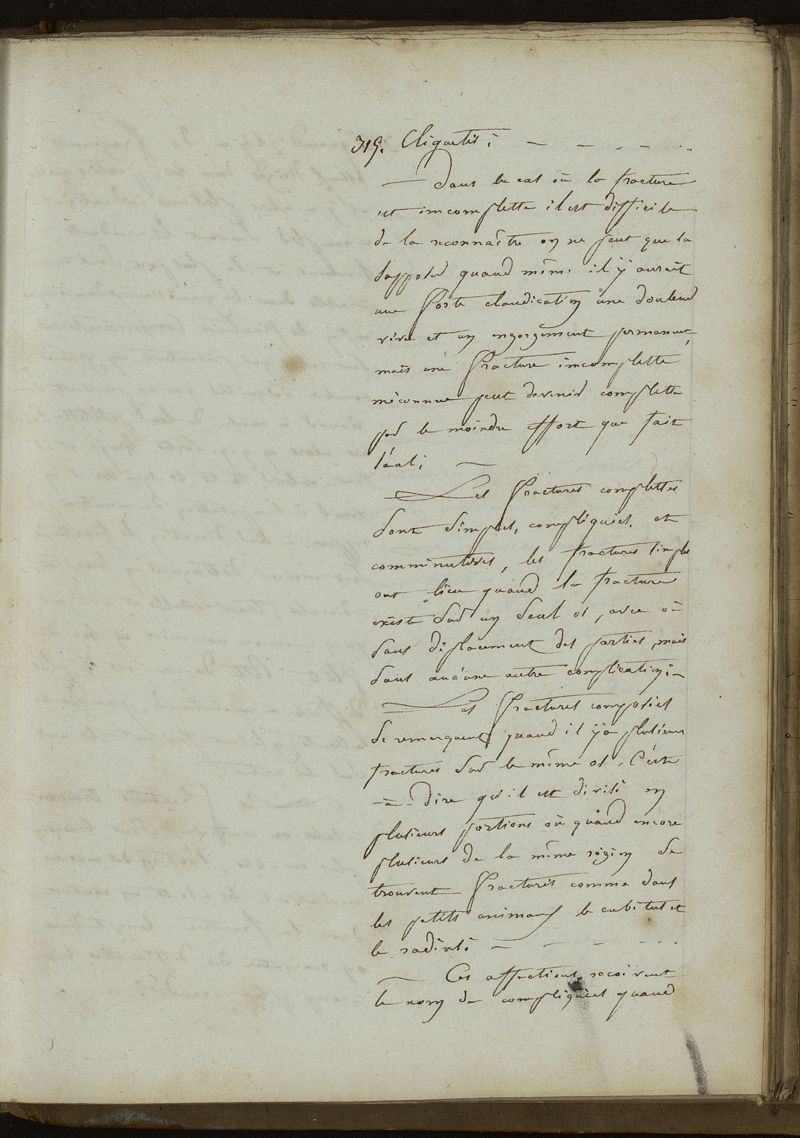 319. Cliquetis; — — — — ..
— Dans le cas où la fracture
est imcomplette il est difficile
de la reconnaître on ne peut que la
supposer quand même il y aurait
une forte claudication une douleur
vive et un engorgement permanent,
mais une fracture imcomplette
méconnue peut devenir complette
par le moindre effort que fait
l'éal;
— Les fractures complettes
sont simples, compliquées, et
comminutives, les fractures simples
ont lieu quand la fracture
existe sur un seul os, avec où
sans displacement des parties, mais
sans aucune autre complication; —
Les fractures composées
se remarquent quand il y a plusieurs
fractures sur le même os, C'est
-à-dire qu'il est divisé en
plusieurs portions où quand encore
plusieurs de la même région se
trouvent fracturés comme dans
les petits animaux le cubitus et
le radius; — — — ...
— Ces affections recoivent
le nom de compliquées quand